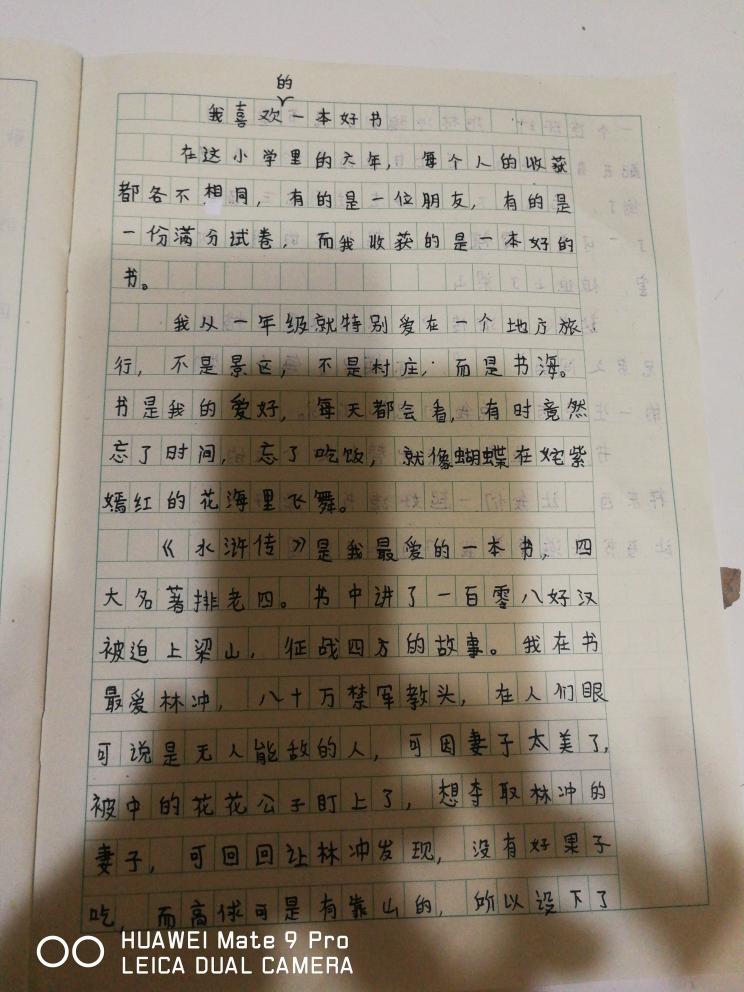 的
我喜欢一本好书
在这小学里的六年，每个人的收获
都各不相同，有的是一位朋友，有的是
一份满分试卷，而我收获的是一本好的
书。
我从一年级就特别爱在一个地方旅
行，不是景区，不是村庄，而是书海。
书是我的爱好，每天都会看，有时竟然
忘了时间，忘了吃饭，就像蝴蝶在姹紫
嫣红的花海里飞舞。
《水浒传》是我最爱的一本书，四
大名著排老四。书中讲了一百零八好汉
被迫上梁山，征战四方的故事。我在书
最爱林冲，八十万禁军教头，在人们眼
可说是无人能敌的人，可因妻子太美了，
被中的花花公子盯上了，想夺取林冲的
妻子，可回回让林冲发现，没有好果子
吃，而高俅可是有靠山的，所以设下了
HUAWEI Mate 9 Pro
LEICA DUAL CAMERA